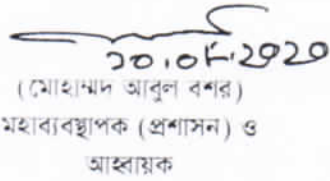 ২০.০৮.২০২০
(মোহাম্মদ আবুল বশর)
মহাব্যবস্থাপক (প্রশাসন) ও
আহবায়ক